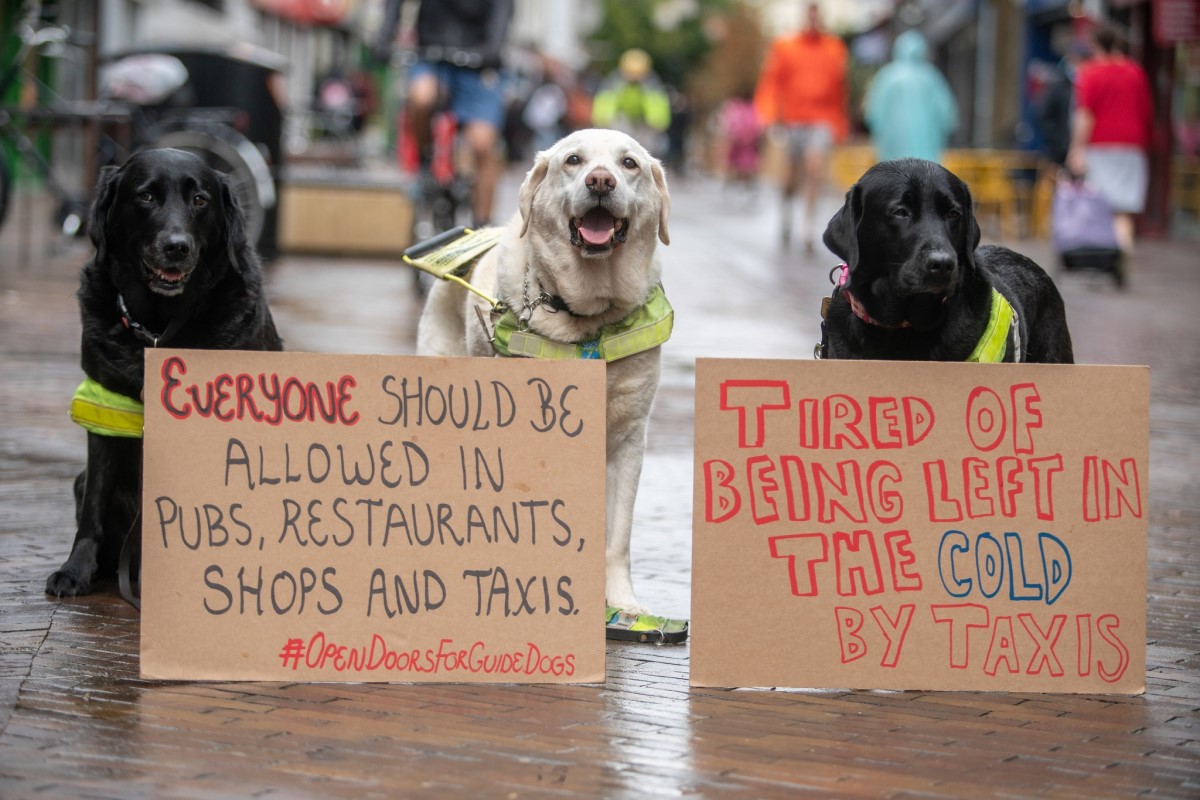 EVERYONE SHOULD BE
ALLOWED IN
PUBS, RESTAURANTS,
SHOPS AND TAXIS.
#OPENDOORSFORGUIDEDOGS
TIRED OF
BEING LEFT IN
THE COLD
BY TAXIS